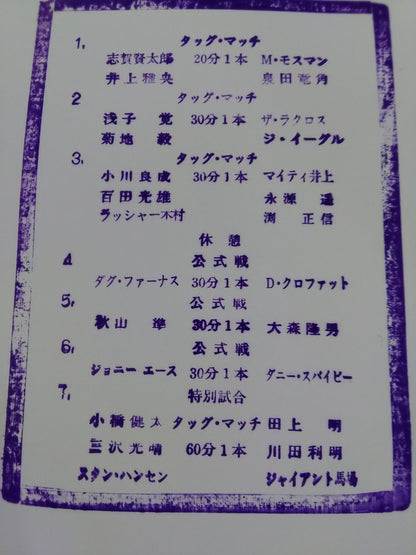 1. タッグ・マッチ
志賀賢太郎 20分1本 M・モスマン
井上雅央 泉田竜角
2 タッグ・マッチ
浅子 覚 30分1本 ザ・ラクロス
菊地 毅 ジ・イーグル
3. タッグ・マッチ
小川良成 30分1本 マイティ井上
百田光雄 永源 遥
ラッシャー木村 渕 正信
休憩
4 公式戦
ダグ・ファーナス 30分1本 D・クロファット
5. 公式戦
秋山 準 30分1本 大森隆男
6. 公式戦
ジョニーエース 30分1本 ダニー・スパイビー
7. 特別試合
小橋健太 タッグ・マッチ 田上 明
三沢光晴 60分1本 川田利明
スタン・ハンセン ジャイアント馬場